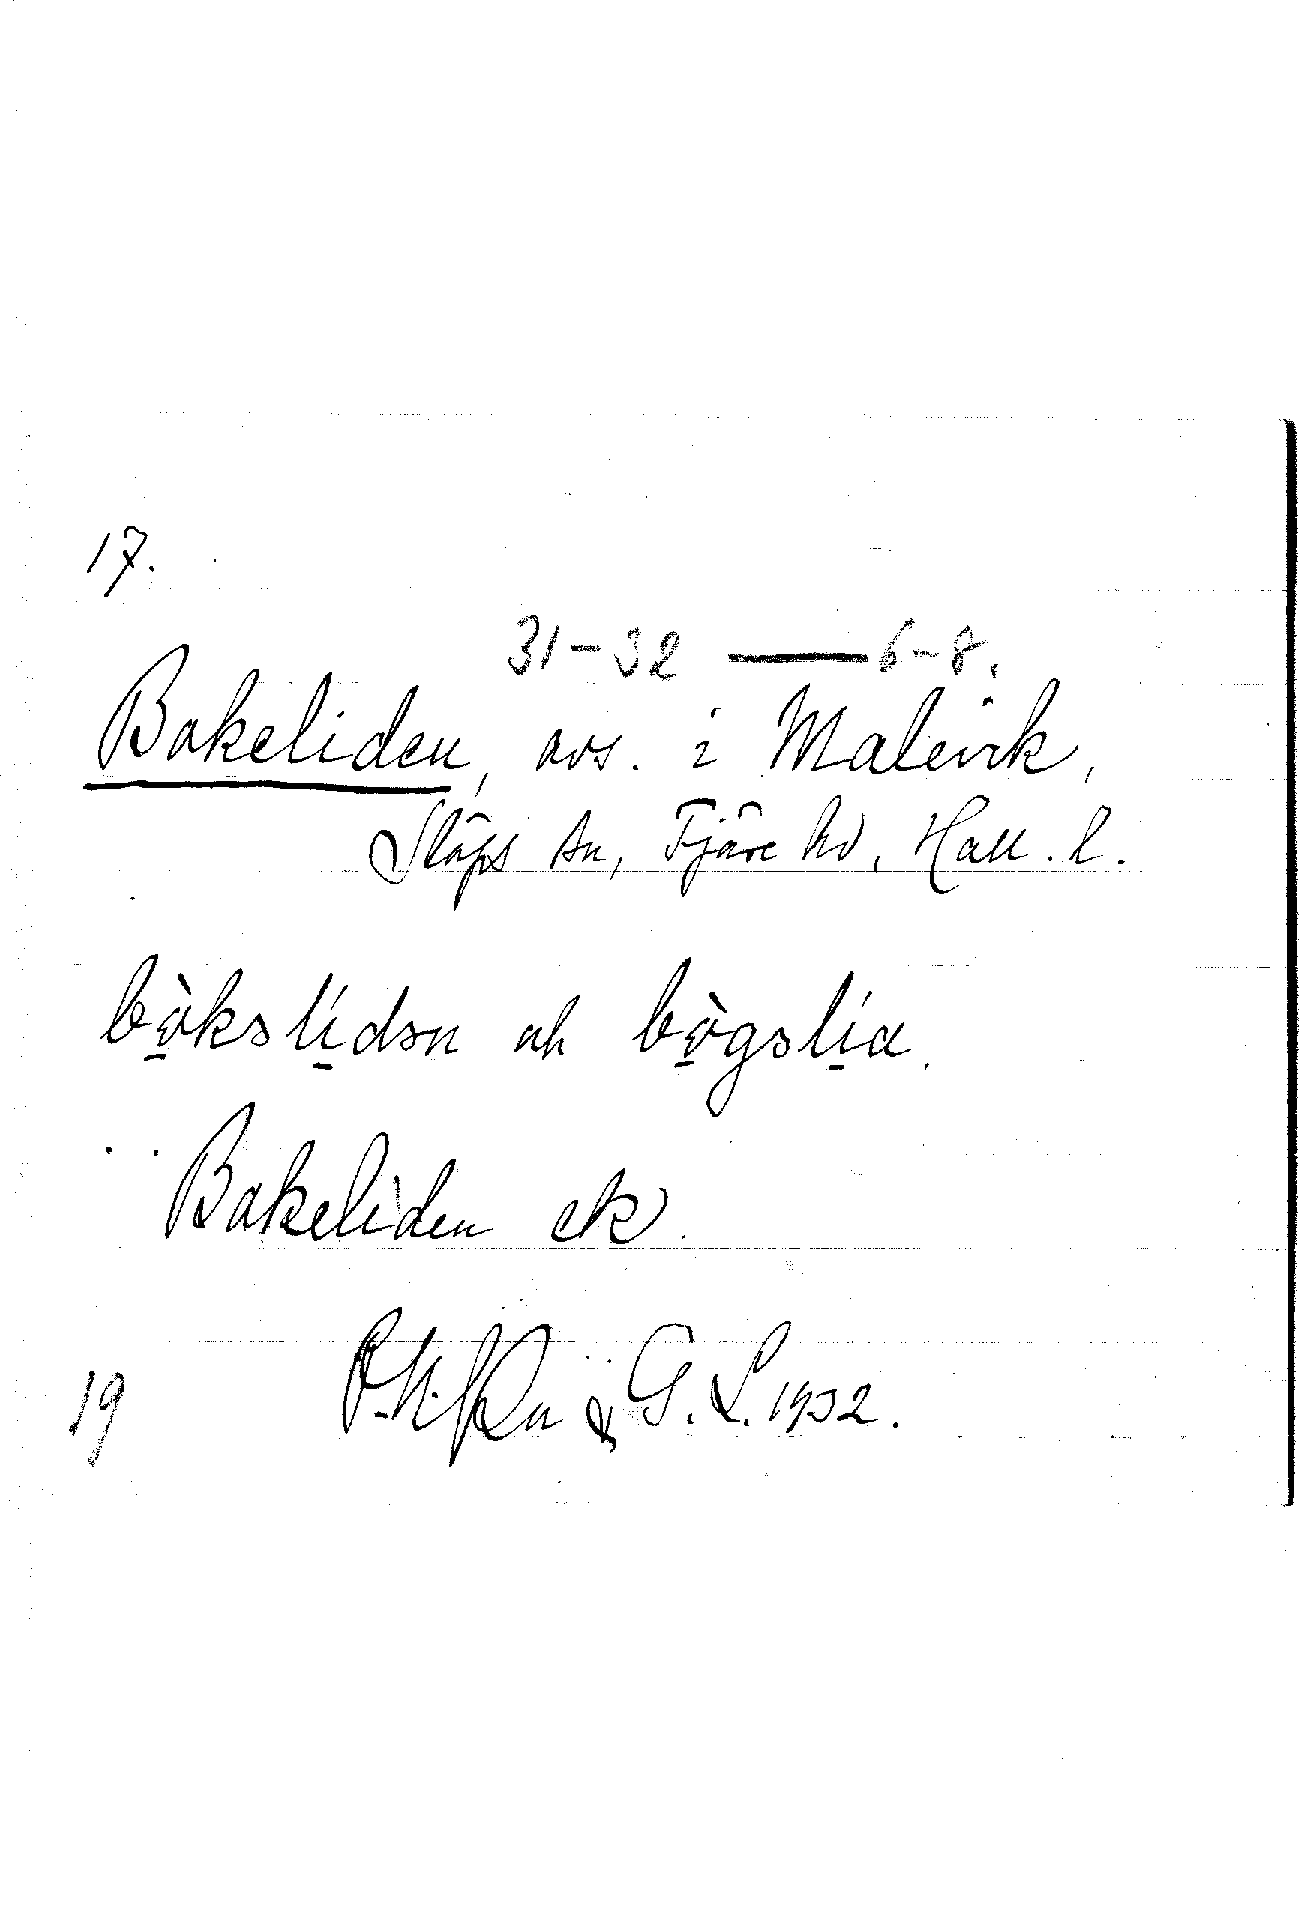 17.
31-32 — 6-8.
Bakeliden, avs. i Malevik,
Släps sn, Fjäre hd, Hall. l.
bòkəlídən ok bògəlía.
Bakeliden ek
& G. L. 1932.
19